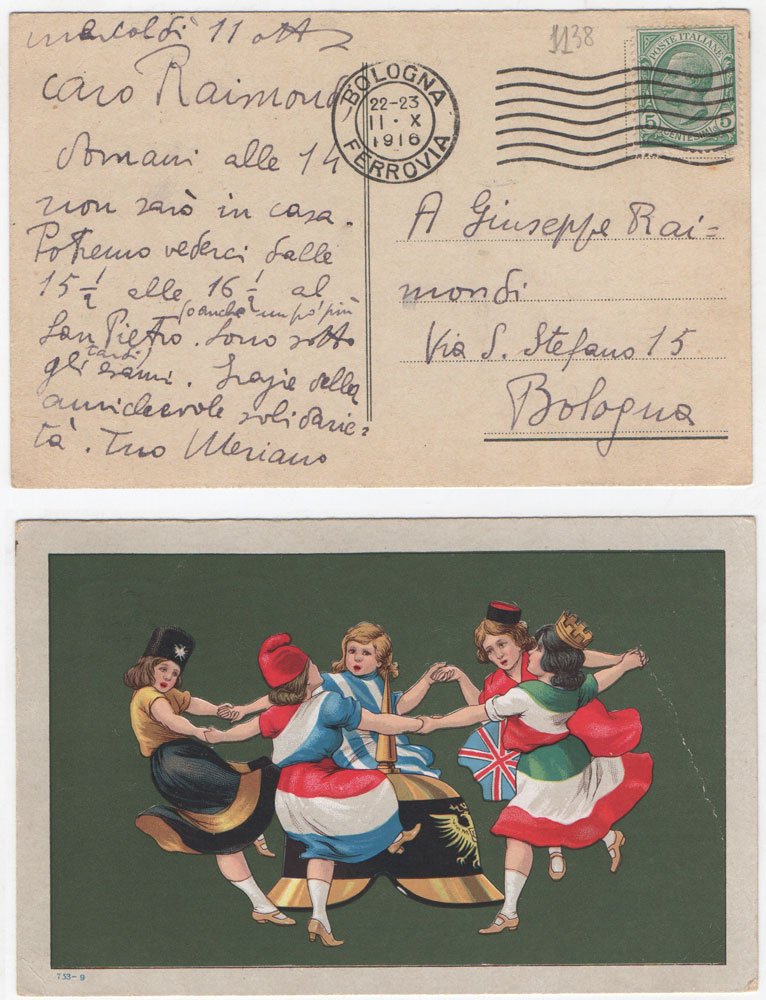 mercoldì 11 ott
1138
caro Raimondi
BOLOGNA
22-23
11 · X
1916
FERROVIA
POSTE ITALIANE
5 5
CENTESIMI
domani alle 14
non sarò in casa.
Potremo vederci dalle
15 ½ alle 16 ½ al
(o anche un po' più
San Pietro. Sono sotto
tardi)
gli esami. Grazie della
amichevole solidarie=
tà. Tuo Meriano
A Giuseppe Rai=
mondi
Via S. Stefano 15
Bologna
753-9